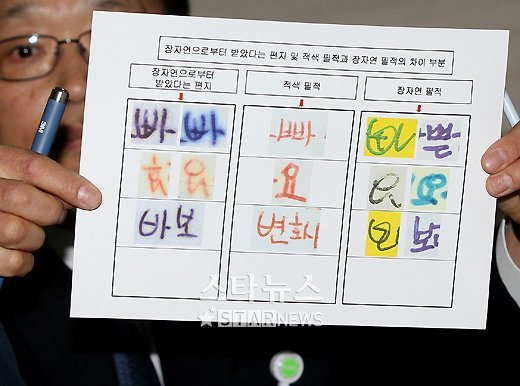 장자연으로부터 받았다는 편지 및 적색 필적과 장자연 필적의 차이 부분
장자연으로부터 받았다는 편지
적색 필적
장자연 필적
빠 빠
빠
쁜
요 요
요
요 요
바보
변화
보
스타뉴스
STARNEWS